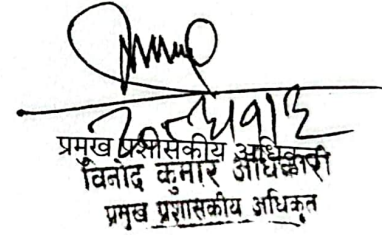 प्रमुख प्रशासकीय अधिकृत
विनोद कुमार अधिकारी
प्रमुख प्रशासकीय अधिकृत